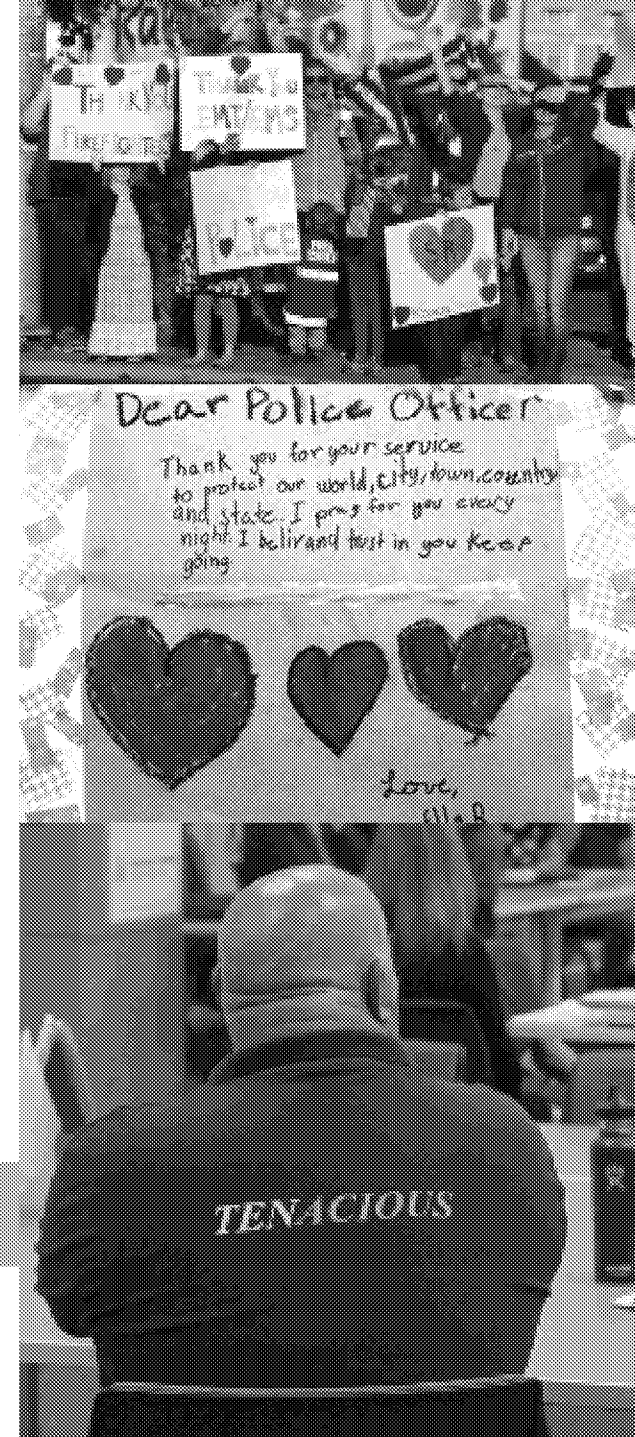 THANK YOU
FIREFIGHTERS
THANK YOU
EMT/EMS
POLICE
Dear Police Officer
Thank you for your service
to protect our world,city,town,country
and state. I pray for you every
night. I belivand trust in you keep
going
Love,
Ella R
TENACIOUS